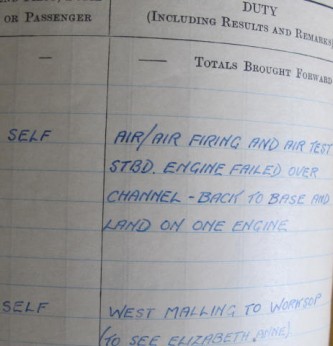 OR PASSENGER
DUTY
(INCLUDING RESULTS AND REMARKS)
— — TOTALS BROUGHT FORWARD
SELF AIR/AIR FIRING AND AIR TEST
STBD. ENGINE FAILED OVER
CHANNEL - BACK TO BASE AND
LAND ON ONE ENGINE
SELF WEST MALLING TO WORKSOP
(TO SEE ELIZABETH ANNE)